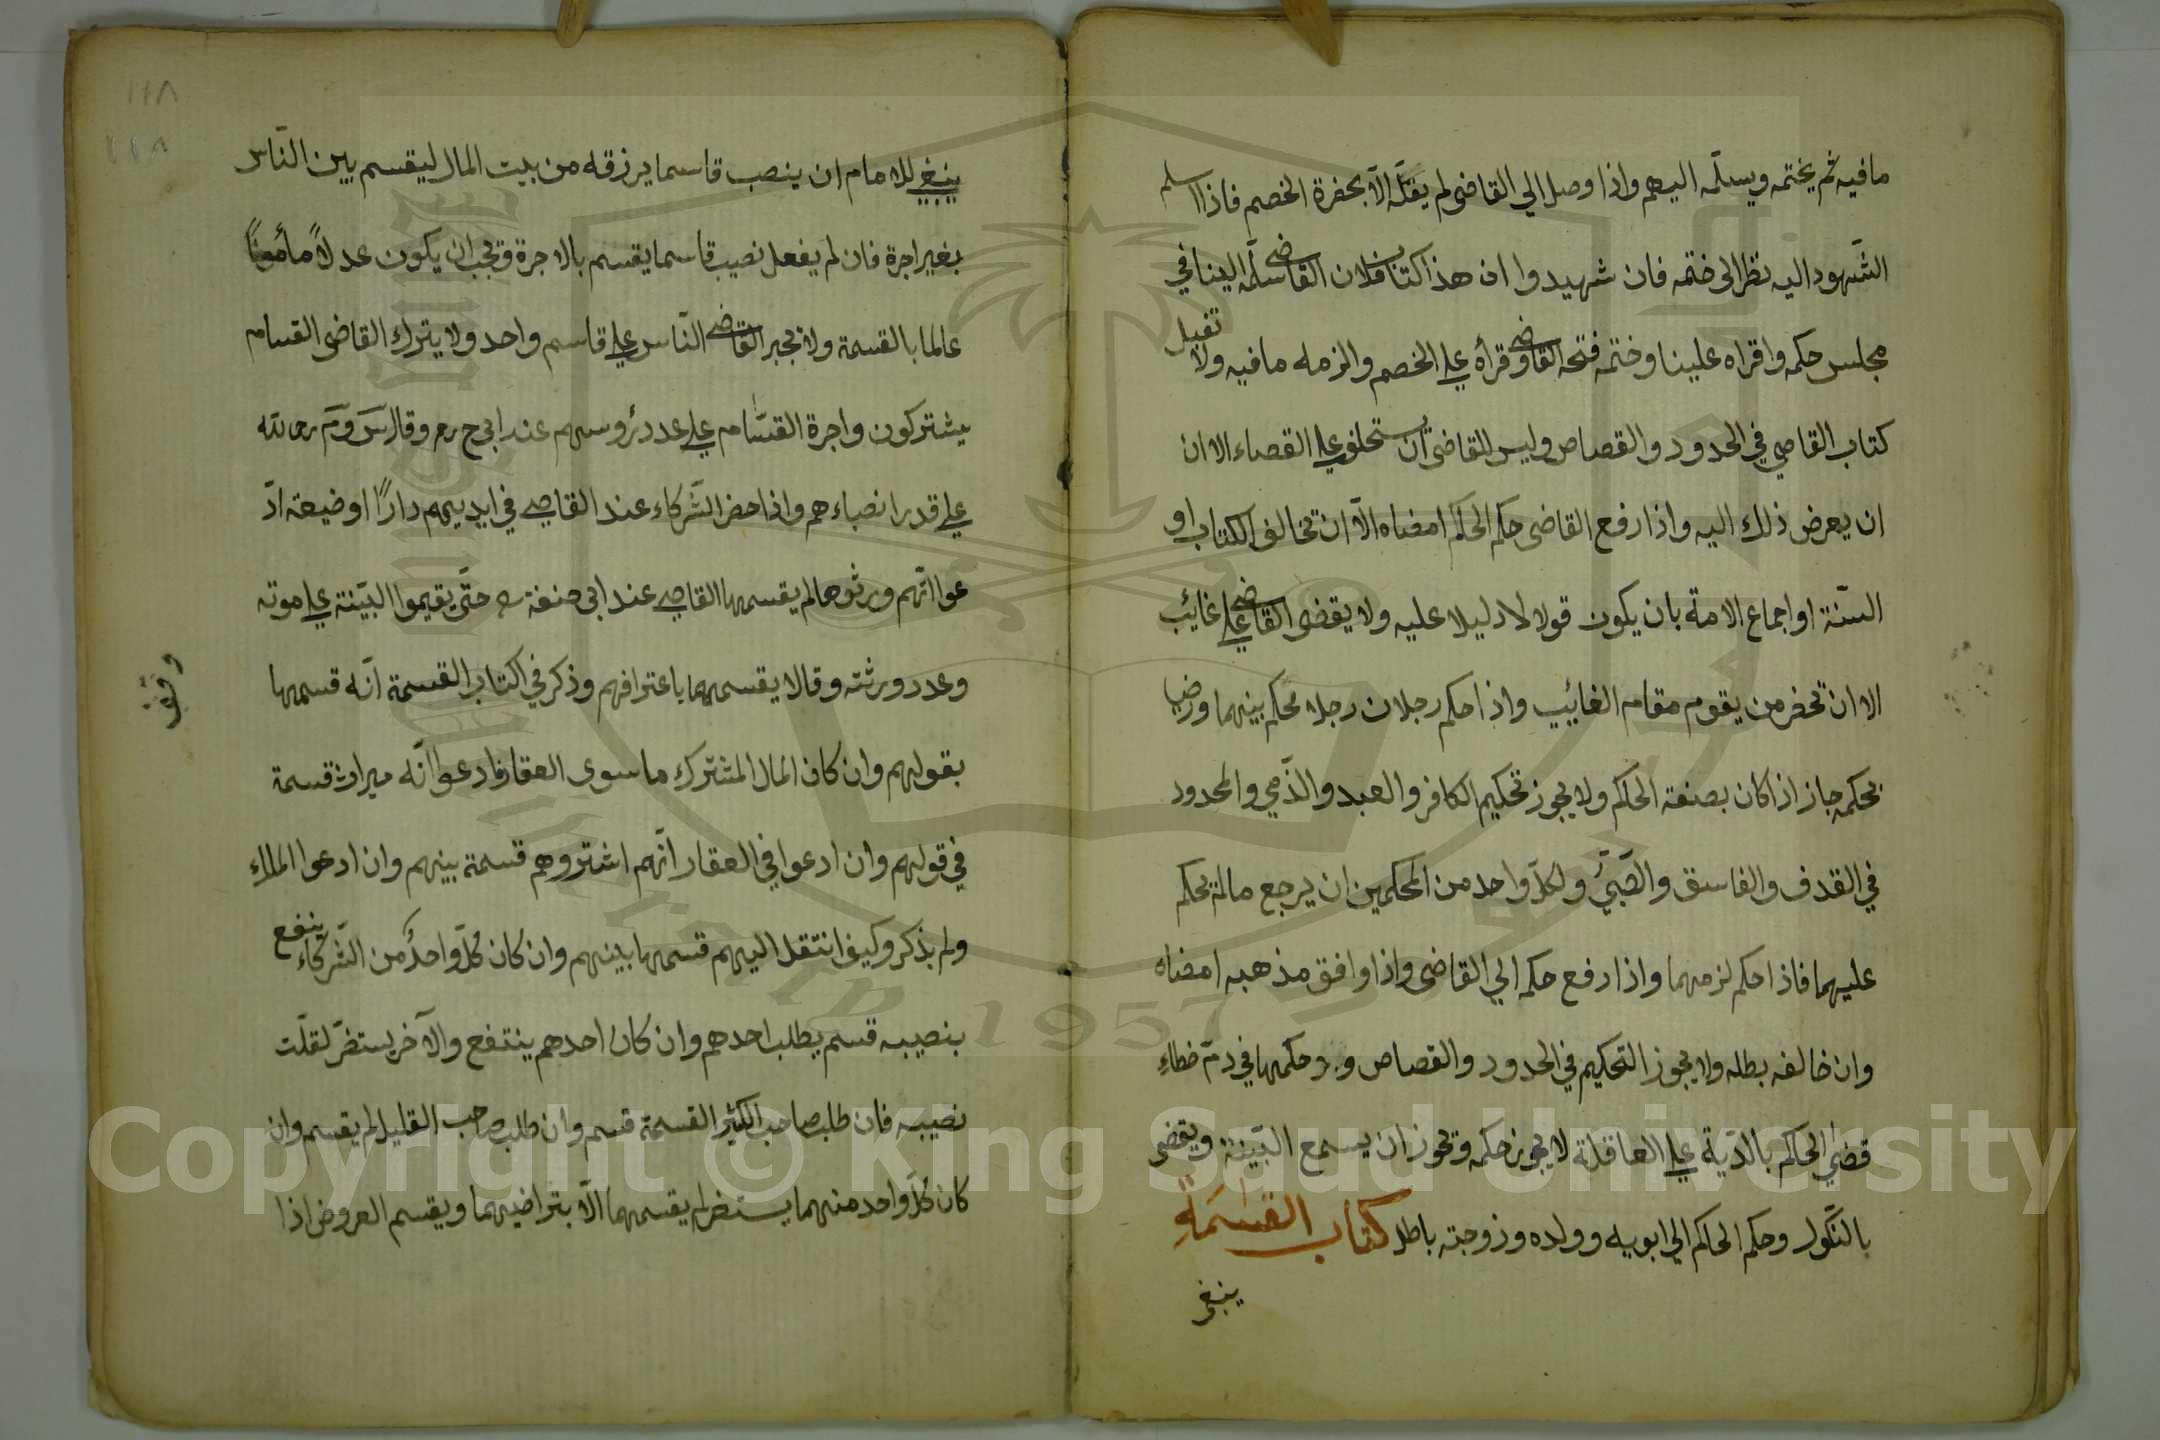 مافيه ثم يختمه ويسلّمه اليهم واذا وصل الي القاضى لم يقبله الّا بحضرة الخصم فاذا سلم
الشّهود اليه نظر الى ختمه فان شهيدوا ان هذا كتاب فلان القاضى سلّمه الينا في
مجلس حكمه واقراه علينا وختمه فتحه القاضى وقرأه علي الخصم والزمه مافيه ولا تقبل
كتاب القاضي في الحدود والقصاص وليس للقاضى ان يستحلف علي القضاء الا ان
ان يعرض ذلك اليه واذا رفع القاضى حكم الحاكم امضاه الّا ان تخالف الكتاب او
السّنّة او اجماع الامة بان يكون قولا لا دليلا عليه ولا يقضى القاضى علي غائب
الا ان تحضر من يقوم مقام الغائب واذا حكم رجلان رجلا يحكم بينهما ورضيا
بحكمه جاز اذا كان بصفة الحاكم ولا يجوز تحكيم الكافر والعبد والذّمي والمحدود
في القدف والفاسق والصّبيّ ولكلّ واحد من المحكمين ان يرجع مالم يحكم
عليهما فاذا حكم لزمهما واذا رفع حكمه الي القاضى واذا وافق مذهبه امضاه
وان خالفه بطله ولا يجوز التحكيم في الحدود والقصاص و حكمها في دم خطاء
قضي الحاكم بالدّية علي العاقلة لا يجوز حكمه ويجوز ان يسمع البيّنة ويقضى
بالنّكول وحكم الحاكم الي ابويه وولده وزوجته باطل كتاب القسمة
ينبغي
١١٨
١١٨
ينبغي للامام ان ينصب قاسما يرزقه من بيت المال ليقسم بين النّاس
بغير اجرة فان لم يفعل نصيب قاسما يقسم بالاجرة ويجب ان يكون عدلاً مأموناً
عالما بالقسمة ولا يجبر القاضى النّاس علي قاسم واحد ولا يترك القاضى القسام
يشتركون واجرة القسّام علي عدد رؤوسهم عند ابي ح رم وقال س وم رحمه الله
علي قدر انصباءهم واذا حضر الشّركاء عند القاضي في ايديهم دارًا او ضيعة ادّ
عوا انّهم ورثوها لم يقسمها القاضي عند ابى حنفة حتّى يقيموا البيّنة علي موته
وعدد ورثته وقالا يقسمهما باعترافهم وذكر في اكتاب القسمة انّه قسمها
بقولهم وان كان المال المشترك ماسوى العقار فادعوا انّه ميراث قسمة
في قولهم وان ادعوا في العقار انّهم اشتروهم قسمة بينهم وان ادعوا الملك
ولم يذكر وكيف انتقل اليهم قسمها بينهم وان كان كلّ واحدٌ من الشّركاء ينفع
بنصيبه قسم يطلب احدهم وان كان احدهم ينتفع والآخر يستضرّ لقلّت
نصيبه فان طلب صاحب الكثير القسمة قسم وان طلب صاحب القليل لم يقسم وان
كان كلّ واحد منهما يستضر لم يقسمهما الّا بتراضيهما ويقسم العروض اذا
وقف
Copyright © King Saud University
1957